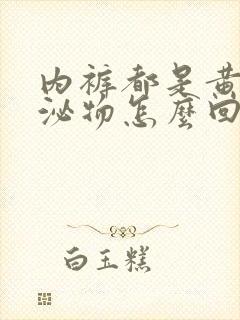 内裤都是黄
泌物怎麼回
白玉糕